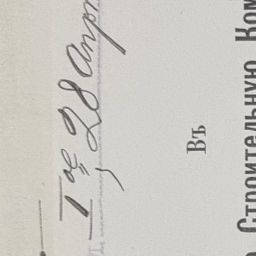 28 Апр
Въ
Строительную Ком